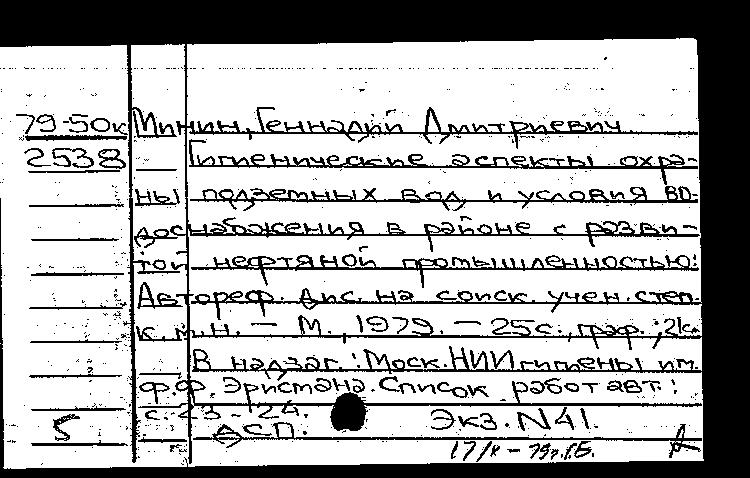 79-50к Минин, Геннадий Дмитриевич.
2538 Гигиенические аспекты охра-
ны подземных вод и условия во-
доснабжения в районе с разви-
той нефтяной промышленностью:
Автореф. дис. на соиск. учен. степ.
к.м.н. - М., 1979. - 25с., граф.; 21см
В надзаг.: Моск. НИИ гигиены им.
Ф.Ф. Эрисмана. Список работ авт.:
с. 23-24.
5 ДСП. Экз. N41.
17/X - 79г. Г.Б.